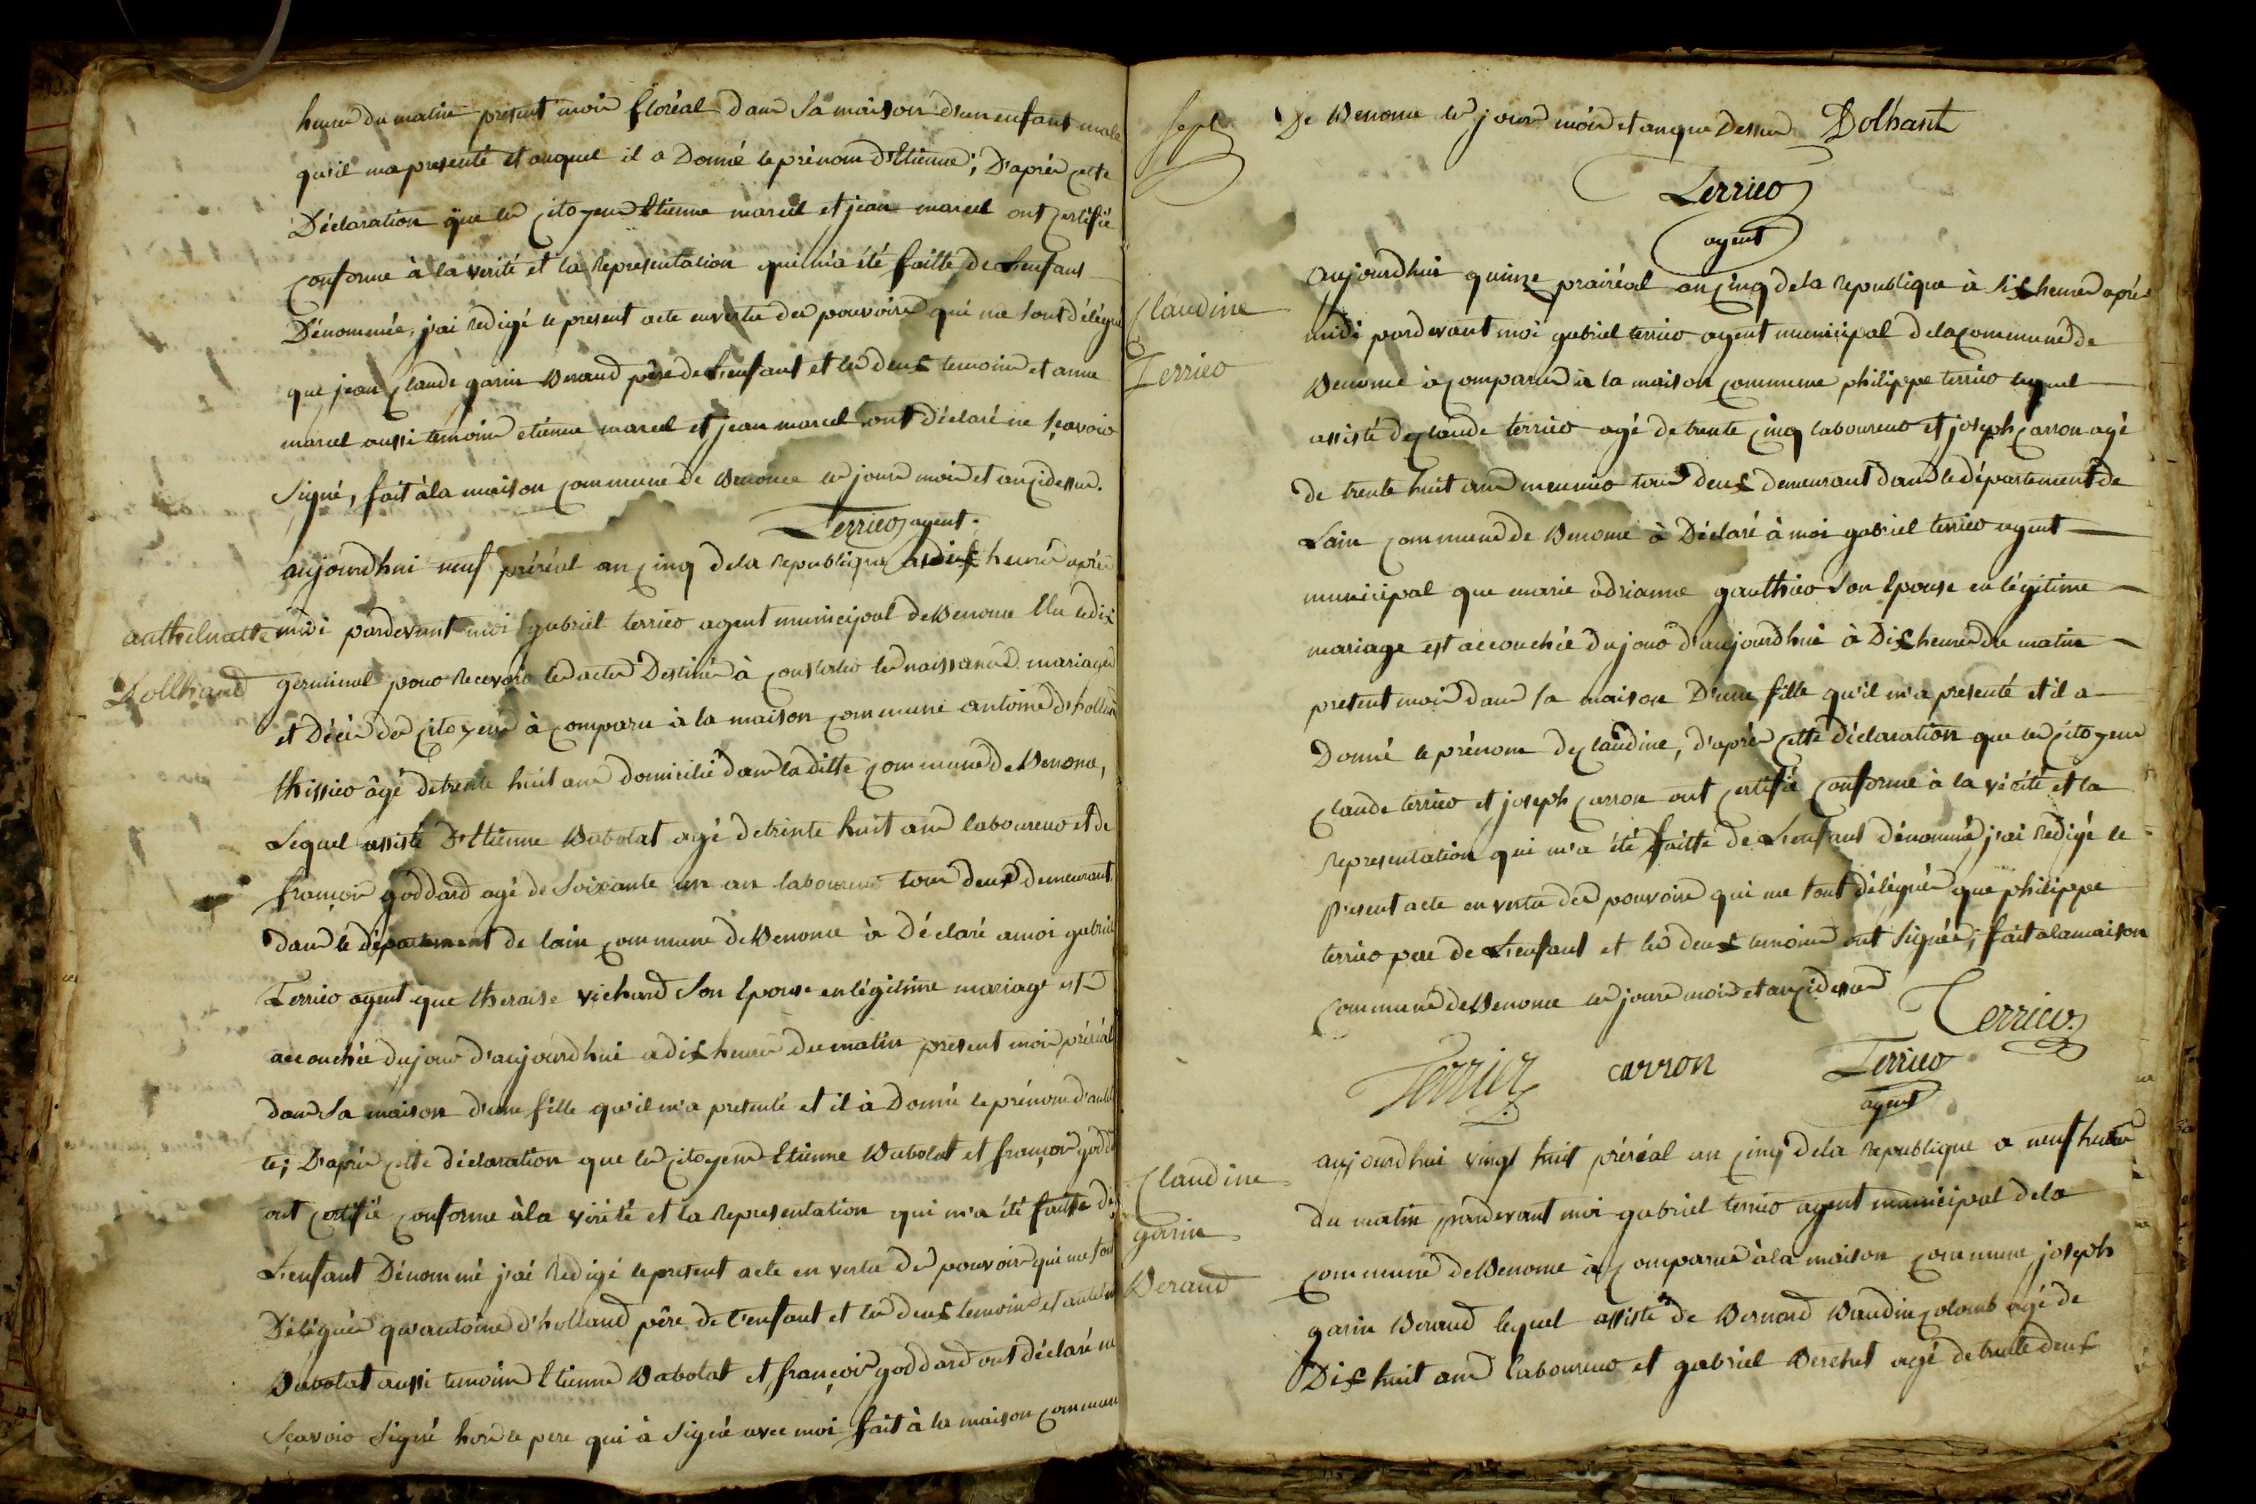 heures du matin present mois floréal dans sa maison d'un enfant male
qu'il ma presenté et auquel il a Donné le prénom d'Etienne; D'après cette
Déclaration que les citoyens Etienne marcel et jean marcel ont certifié
conforme à la verité et la representation qui m'a été faitte de Lenfant
Dénommée, j'ai redigé le present acte en vertu des pouvoirs qui me sont délégué
que jean claude garin Beraud père de Lenfant et les deux temoins et anne
marcel aussi temoins etienne marcel et jean marcel ont déclaré ne sçavoir
signé, fait à la maison commune de Benonce les jours mois et an cidessus.
Terrier agent.
aujourdhui neuf préréal an cinq de la republique à dix heures après
anthelmette
midi pardevant moi gabriel terrier agent municipal de Benonce Elu le dix
Dollhand
germinal pour recevoir les actes Destinés à constater les naissances mariages
et Décès des citoyens à comparu à la maison commune antoine d'holland
thissier âgé de trente huit ans domicilié dans laditte commune de Benonce,
Lequel assisté D'Etienne Babolat agé de trente huit ans laboureur et de
françois goddard agé de soixante un an laboureur tous deux demeurant
dans le département de lain commune de Benonce à Déclaré a moi gabriel
Terrier agent que theraise vichard son Epouse en légitime mariage est
accouchée du jour d'aujourdhui a dix heures du matin present mois préréal
dans sa maison d'une fille qu'il m'a presenté et il à Donné le prénom d'antel
te; D'après cette déclaration que les citoyens Etienne Babolat et françois godda
ont certifié conforme à la vérité et la representation qui m'a été faitte de
Lenfant Dénommé j'ai redigé le present acte en vertu des pouvoirs qui me sont
Délégués qu'antoine d'holland père de l'enfant et les deux temoins et
Babolat aussi temoins Etienne Babolat et françois goddard ont déclaré ne
sçavoir signé hors le pere qui à signé avec moi fait à la maison commune
sept
De Benonce les jours mois et an que Dessus Dolhant
Terrier
agent
Claudine
Terrier
aujourdhui quinze prairéal an cinq de la republique à six heures après
midi pardevant moi gabriel terrier agent municipal de la commune de
Benonce à comparus à la maison commune philippe terrier lequel
assisté de claude terrier agé de trente cinq laboureur et joseph carron agé
de trente huit ans meunier tous deux demeurant dans le département de
Lain commune de Benonce à Déclaré à moi gabriel terrier agent
municipal que marie adrianne gauthier son Epouse en légitime
mariage est accouchée du jour d'aujourdhui à Dix heures du matin
present mois dans sa maison D'une fille qu'il m'a presenté et il a
Donné le prénom de claudine, d'après cette déclaration que les citoyens
claude terrier et joseph carron ont certifié conforme à la vérité et la
representation qui m'a été faitte de Lenfant dénommé j'ai redigé le
present acte en vertu des pouvoirs qui me sont délégués que philippe
terrier pere de Lenfant et les deux temoins ont signés; fait a la maison
commune de Benonce les jours mois et an cidessus
Terrier
Terrier carron Terrier
agent
Claudine
garin
Beraud
aujourdhui vingt huit préréal an cinq de la republique a neuf heures
du matin pardevant moi gabriel terrier agent municipal de la
commune de Benonce à comparu à la maison commune joseph
garin Beraud lequel assisté de Bernard Baudin colomb agé de
Dix huit ans laboureur et gabriel Berchet agé de trente deux